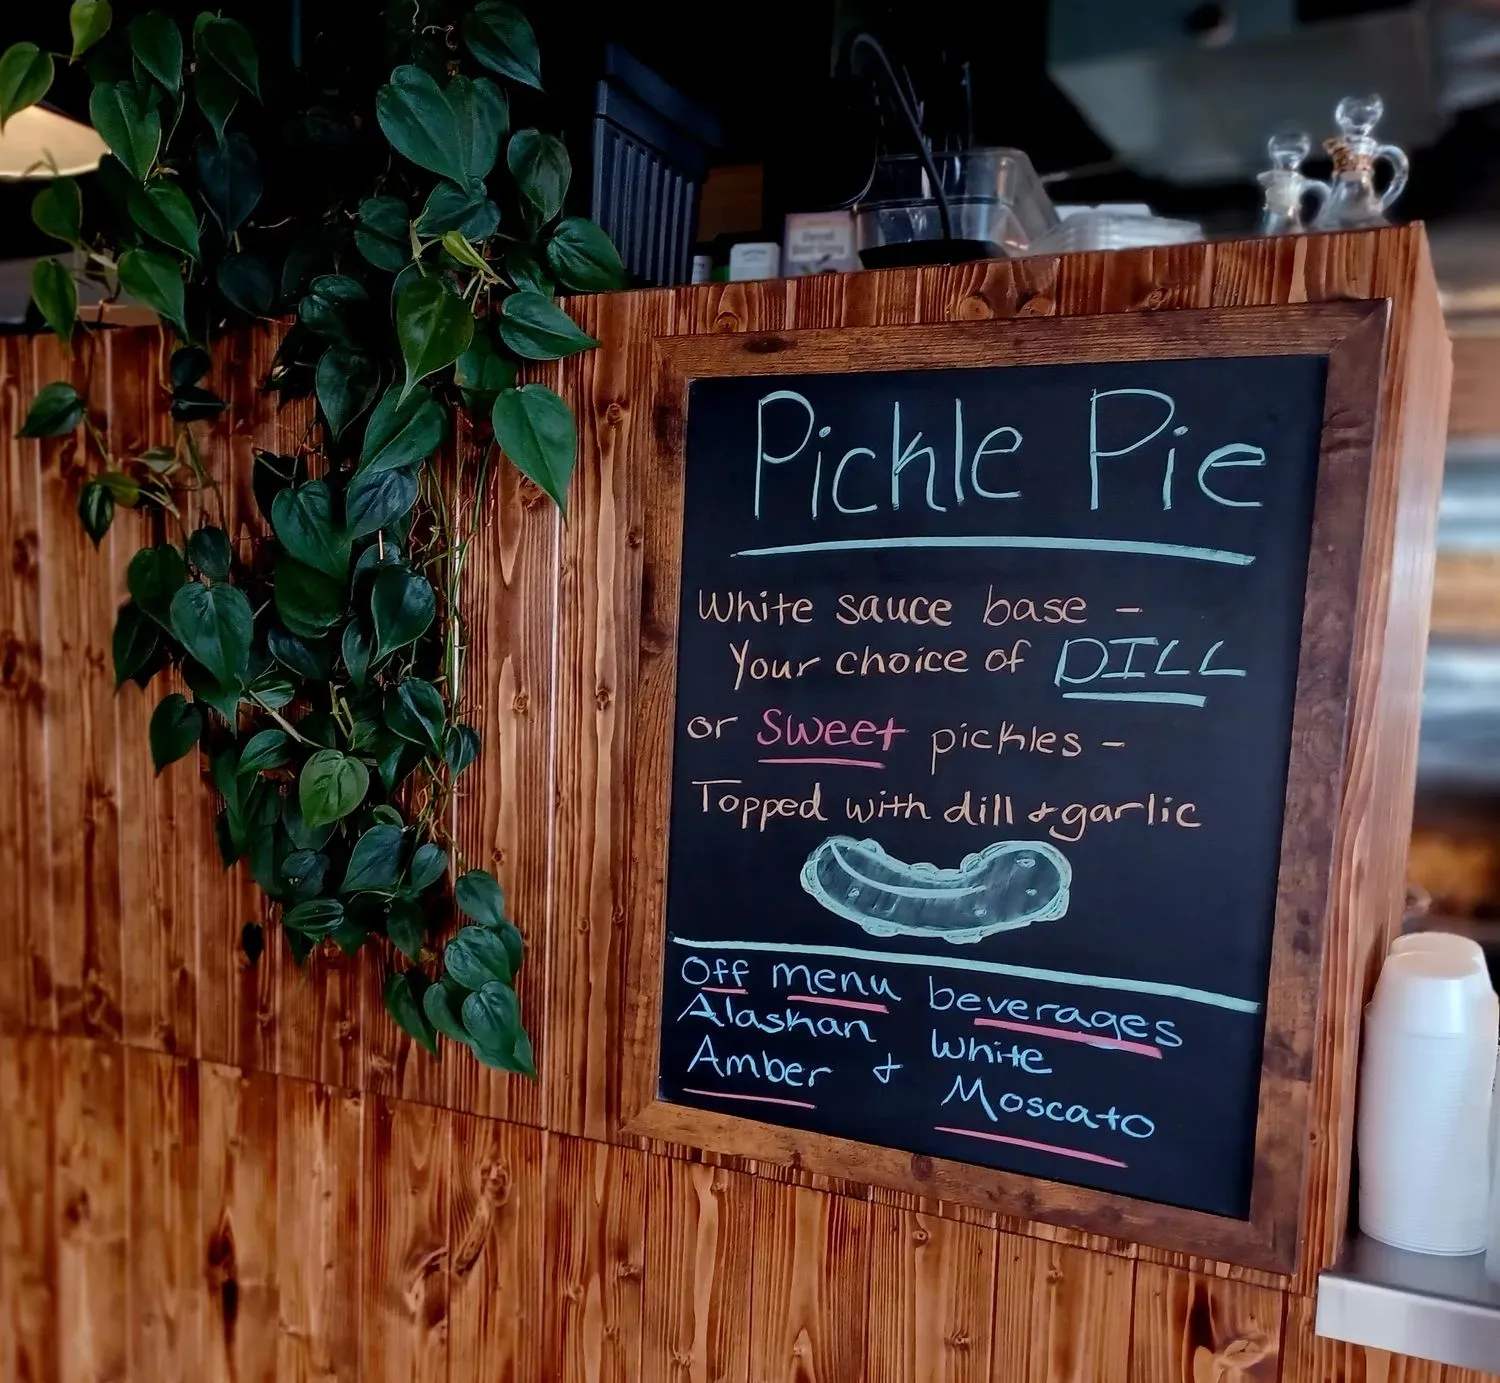 Pickle Pie
White sauce base -
Your choice of DILL
or Sweet pickles -
Topped with dill + garlic
Off menu beverages
Alaskan White
Amber + Moscato